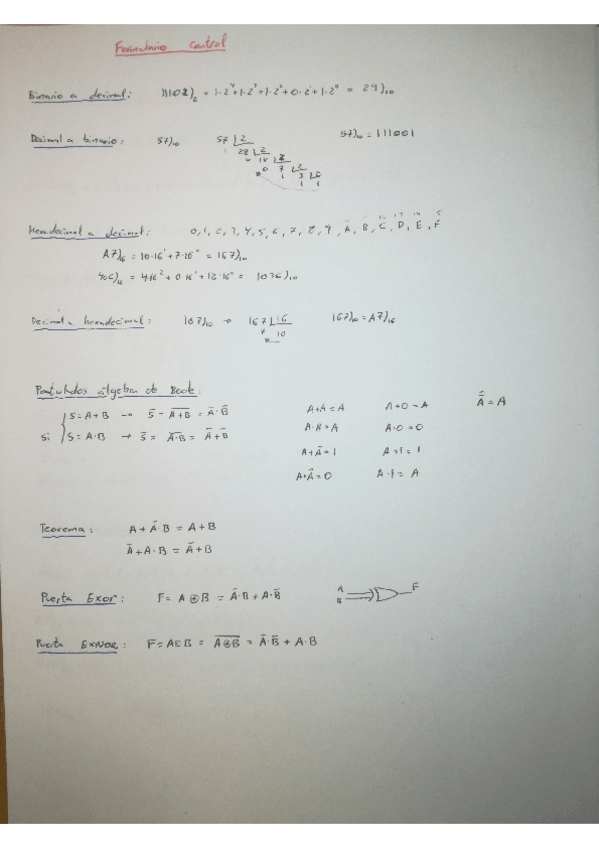 Formulario control
Binario a decimal: 11101)₂ = 1·2⁴+1·2³+1·2²+0·2¹+1·2⁰ = 29)₁₀
Decimal a binario: 57)₁₀ 57 | 2 57)₁₀ = 111001
1 28 | 2
0 14 | 2
0 7 | 2
1 3 | 2
1 1
Hexadecimal a decimal: 0, 1, 2, 3, 4, 5, 6, 7, 8, 9, A, B, C, D, E, F
A7)₁₆ = 10·16¹+7·16⁰ = 167)₁₀
40C)₁₆ = 4·16² + 0·16¹ + 12·16⁰ = 1036)₁₀
Decimal a hexadecimal: 167)₁₀ → 167 | 16 167)₁₀ = A7)₁₆
7 10
Postulados álgebra de Boole:
S = A+B → S̅ = \overline{A+B} = A̅·B̅ A+A = A A+0 = A A̿ = A
Si S = A·B → S̅ = \overline{A·B} = A̅+B̅ A·A = A A·0 = 0
A+A̅ = 1 A+1 = 1
A·A̅ = 0 A·1 = A
Teorema: A + A̅·B = A+B
A̅+A·B = A̅+B
Puerta Exor: F = A ⊕ B = A̅·B + A·B̅ A B F
Puerta EXNOR: F = A⊙B = \overline{A⊕B} = A̅·B̅ + A·B